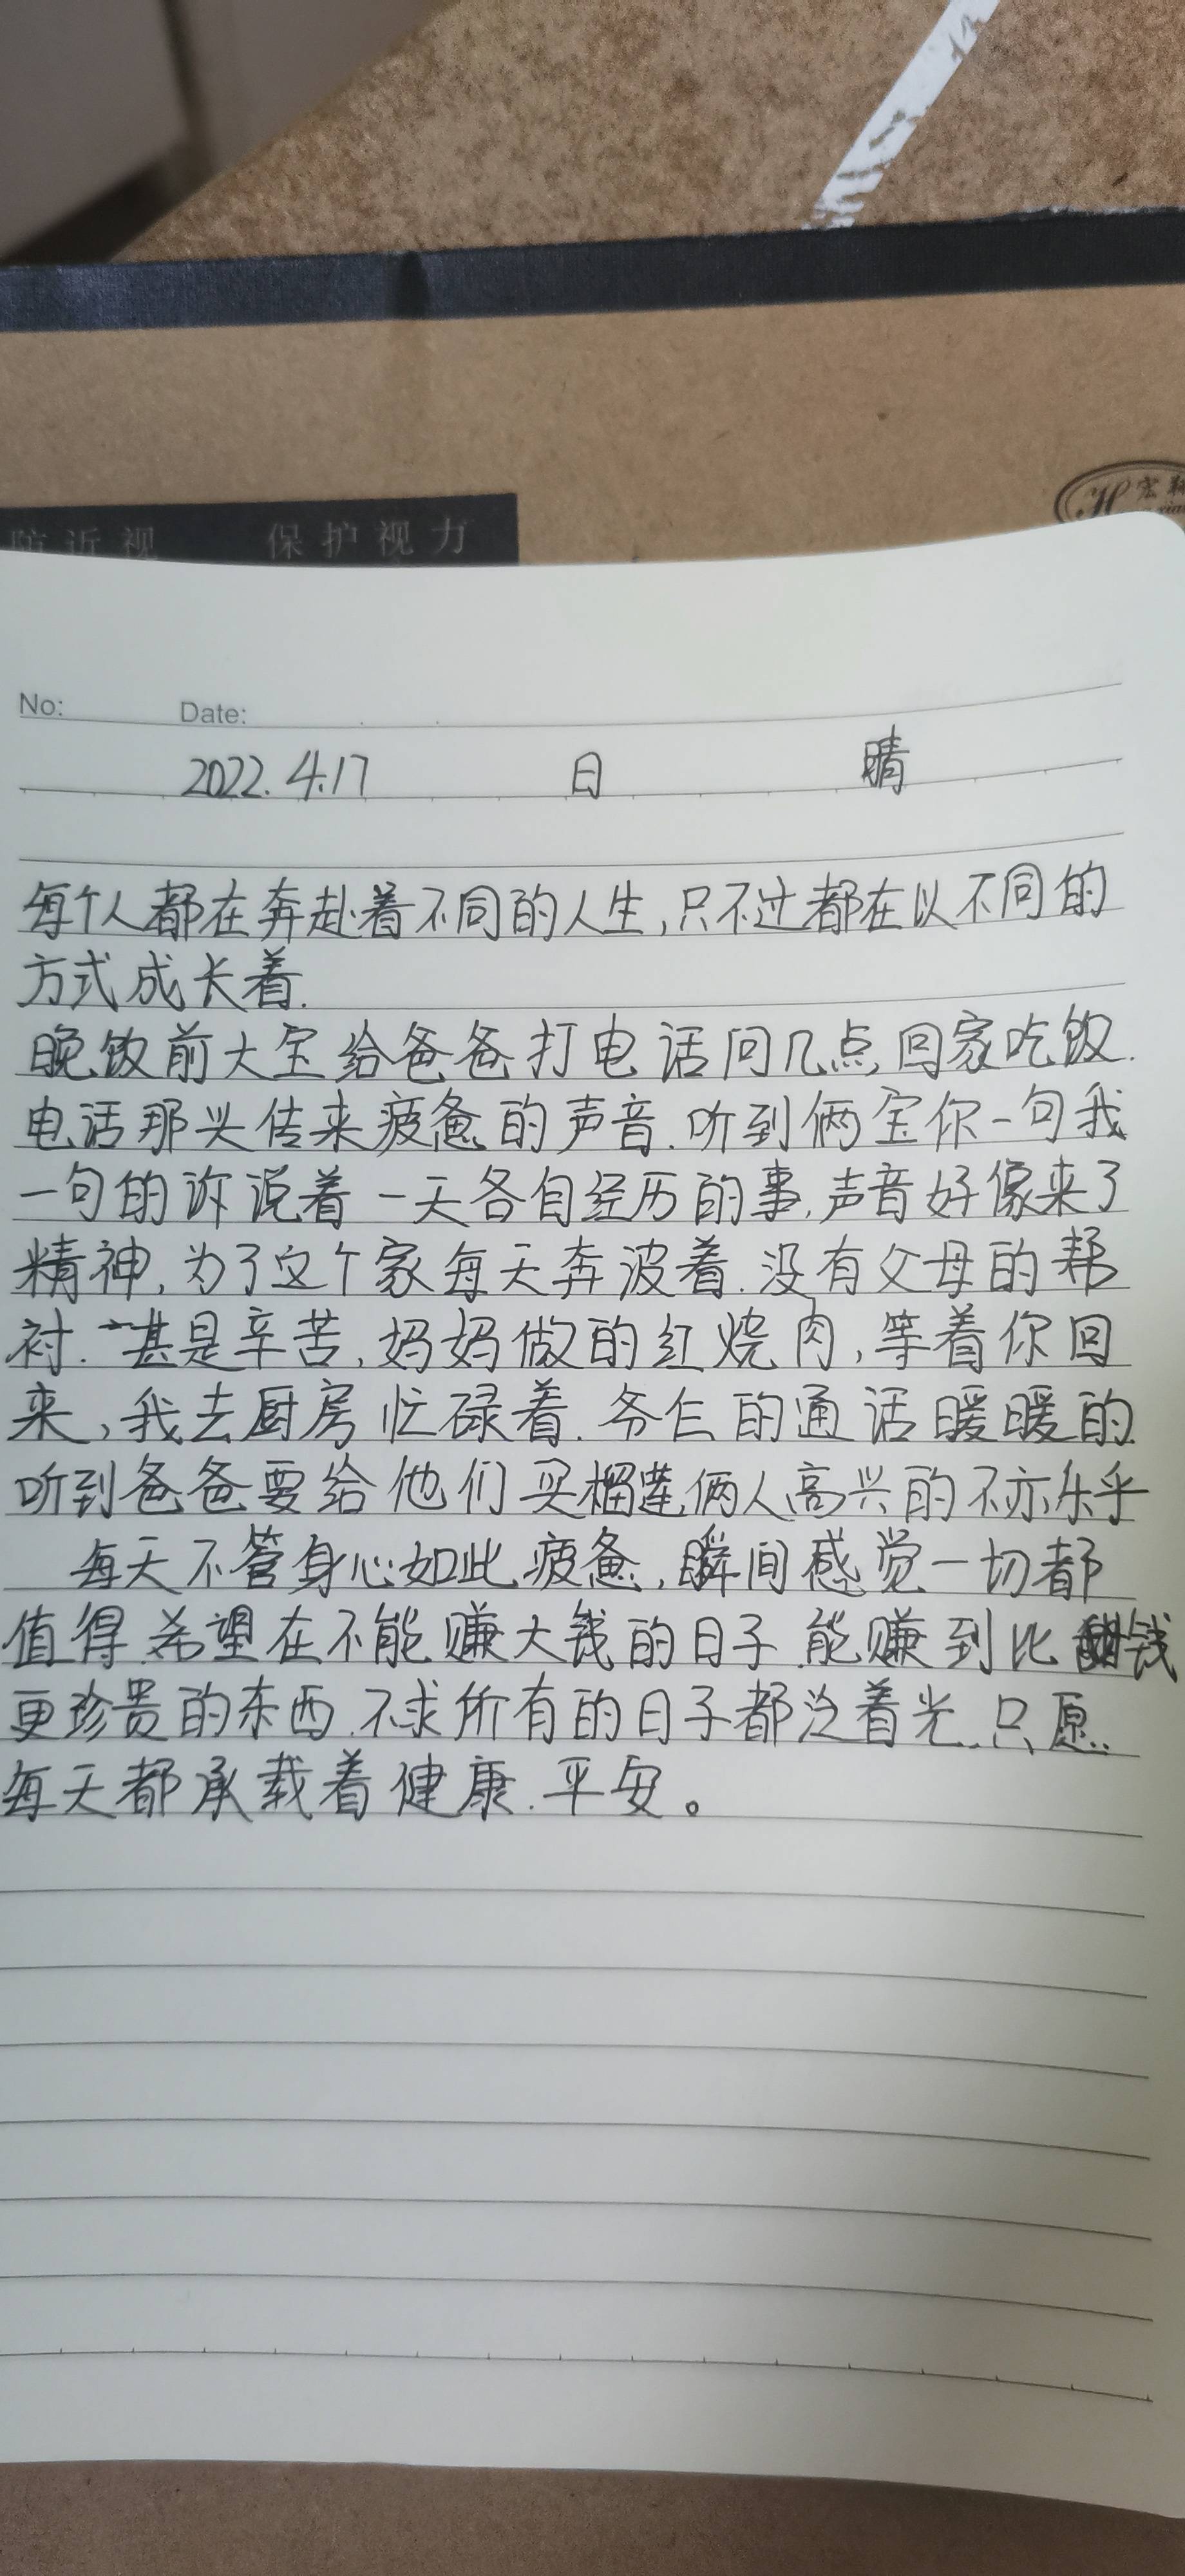 防近视 保护视力
宏
No: Date:
2022.4.17 日 晴
每个人都在奔赴着不同的人生,只不过都在以不同的
方式成长着.
晚饭前大宝给爸爸打电话问几点回家吃饭.
电话那头传来疲惫的声音.听到俩宝你一句我
一句的诉说着一天各自经历的事,声音好像来了
精神,为了这个家每天奔波着.没有父母的帮
衬.甚是辛苦,妈妈做的红烧肉,等着你回
来,我去厨房忙碌着.爷仨的通话暖暖的.
听到爸爸要给他们买榴莲俩人高兴的不亦乐乎
每天不管身心如此疲惫,瞬间感觉一切都
值得 希望在不能赚大钱的日子.能赚到比钱
更珍贵的东西.不求所有的日子都泛着光.只愿..
每天都承载着健康.平安。